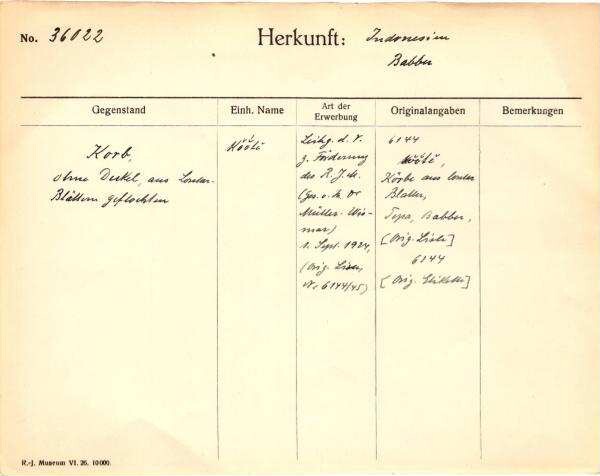 No. 36022 Herkunft: Indonesien
Babber
Gegenstand Einh. Name Art der Erwerbung Originalangaben Bemerkungen
Korb,
ohne Deckel, aus Lontar-
Blättern geflochten
Leihg. d. V.
z. Förderung
des R. J. M.
(Ges. v. H. Dr.
Müller-Wis-
mar)
1. Sept. 1924,
(Orig. Liste,
Nr. 6144/45)
6144
Körbe aus lontar
Blätter,
Tepa, Babber,
[Orig. Liste]
6144
[Orig. Etikette]
R.-J. Museum VI. 26. 10000.